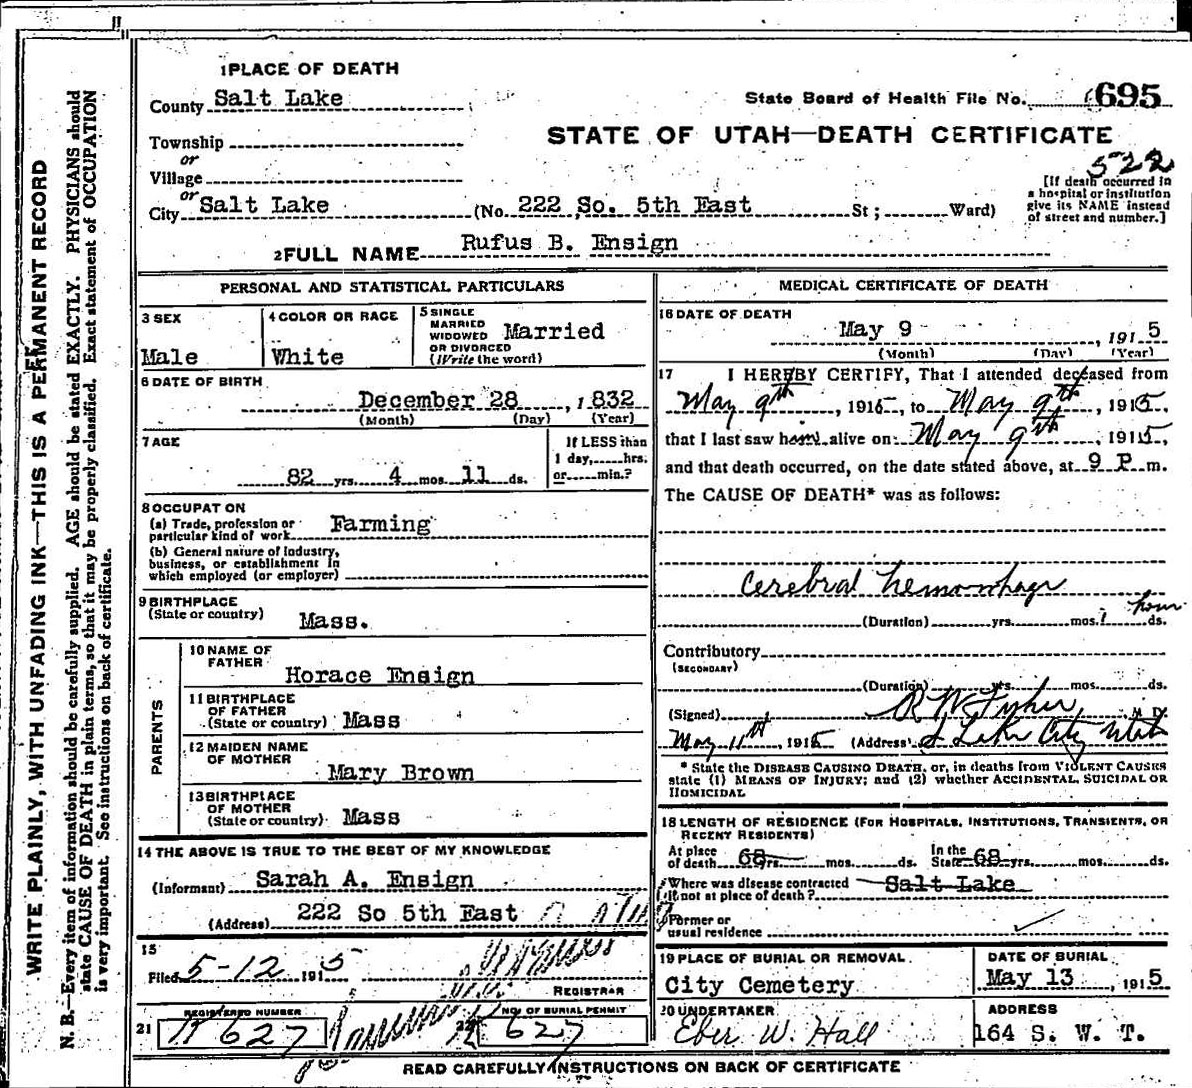 WRITE PLAINLY, WITH UNFADING INK—THIS IS A PERMANENT RECORD
N. B.—Every item of information should be carefully supplied. AGE should be stated EXACTLY. PHYSICIANS should
state CAUSE OF DEATH in plain terms, so that it may be properly classified. Exact statement of OCCUPATION
is very important. See instructions on back of certificate.
1 PLACE OF DEATH
County Salt Lake
State Board of Health File No. 695
Township
STATE OF UTAH—DEATH CERTIFICATE
or
Village
522
or
City Salt Lake (No. 222 So. 5th East St; Ward)
[If death occurred in
a hospital or institution
give its NAME instead
of street and number.]
2 FULL NAME Rufus B. Ensign
PERSONAL AND STATISTICAL PARTICULARS
3 SEX
Male
4 COLOR OR RACE
White
5 SINGLE
MARRIED
WIDOWED
OR DIVORCED
(Write the word)
Married
6 DATE OF BIRTH
December 28, 1832
(Month) (Day) (Year)
7 AGE
82 yrs. 4 mos. 11 ds.
If LESS than
1 day, hrs.
or min.?
8 OCCUPATION
(a) Trade, profession or
particular kind of work Farming
(b) General nature of industry,
business, or establishment in
which employed (or employer)
9 BIRTHPLACE
(State or country) Mass.
PARENTS
10 NAME OF
FATHER
Horace Ensign
11 BIRTHPLACE
OF FATHER
(State or country) Mass
12 MAIDEN NAME
OF MOTHER
Mary Brown
13 BIRTHPLACE
OF MOTHER
(State or country) Mass
14 THE ABOVE IS TRUE TO THE BEST OF MY KNOWLEDGE
(Informant) Sarah A. Ensign
(Address) 222 So 5th East
15
Filed 5-12 1915
REGISTRAR
21 REGISTERED NUMBER
627
22 NO. OF BURIAL PERMIT
627
MEDICAL CERTIFICATE OF DEATH
16 DATE OF DEATH
May 9, 1915
(Month) (Day) (Year)
17 I HEREBY CERTIFY, That I attended deceased from
May 9th, 1915, to May 9th, 1915,
that I last saw him alive on May 9th, 1915,
and that death occurred, on the date stated above, at 9 P. m.
The CAUSE OF DEATH* was as follows:
Cerebral hemorrhage
(Duration) yrs. mos. 1 hour ds.
Contributory
(SECONDARY)
(Duration) yrs. mos. ds.
(Signed) R W Fisher M D
May 11th, 1915 (Address) S Lake City Utah
* State the DISEASE CAUSING DEATH, or, in deaths from VIOLENT CAUSES
state (1) MEANS OF INJURY; and (2) whether ACCIDENTAL, SUICIDAL OR
HOMICIDAL
18 LENGTH OF RESIDENCE (FOR HOSPITALS, INSTITUTIONS, TRANSIENTS, OR
RECENT RESIDENTS)
At place
of death 68 yrs. mos. ds.
In the
State 68 yrs. mos. ds.
Where was disease contracted
if not at place of death? Salt Lake
Former or
usual residence
19 PLACE OF BURIAL OR REMOVAL
City Cemetery
DATE OF BURIAL
May 13, 1915
20 UNDERTAKER
Eber W. Hall
ADDRESS
164 S. W. T.
READ CAREFULLY INSTRUCTIONS ON BACK OF CERTIFICATE